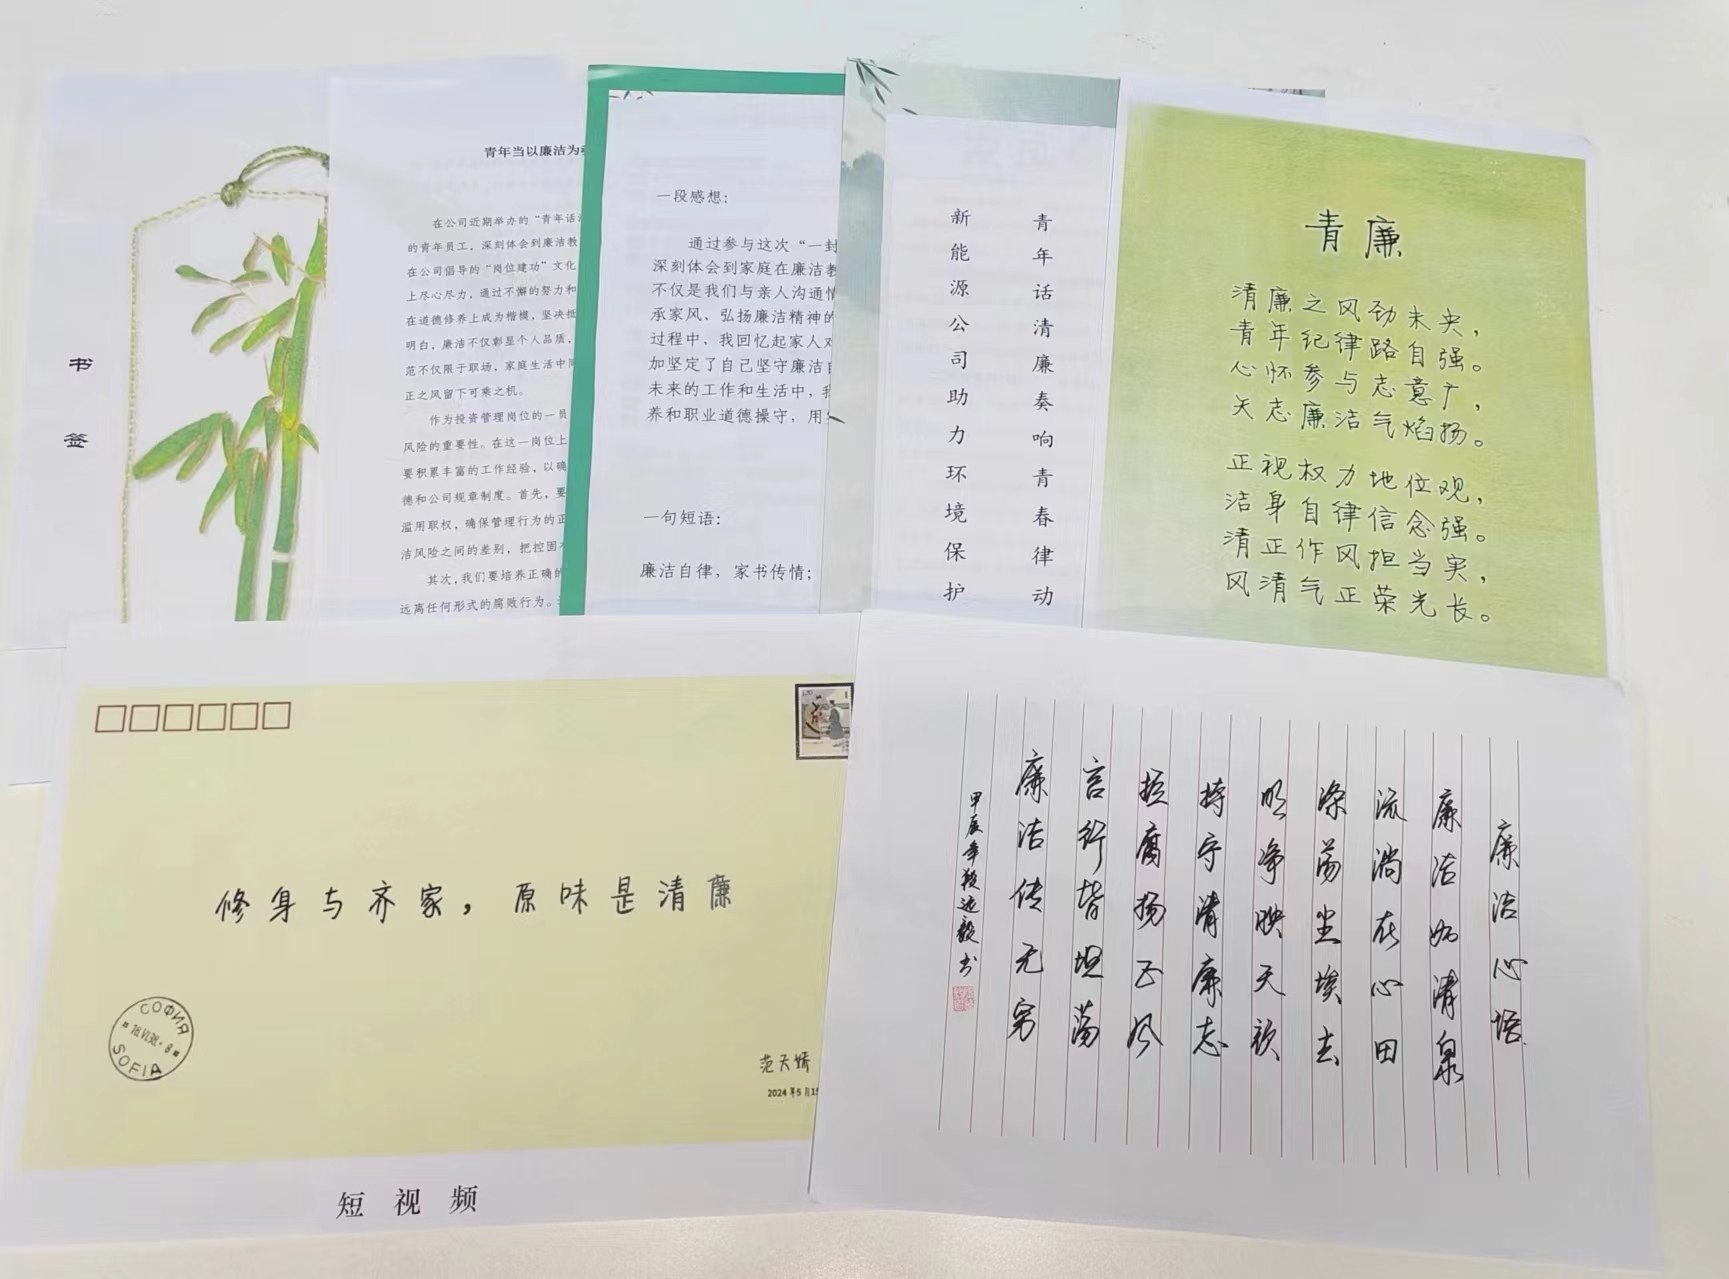 书签
青年当以廉洁为
在公司近期举办的“青年话清
的青年员工，深刻体会到廉洁教
在公司倡导的“岗位建功”文化
上尽心尽力，通过不懈的努力和
在道德修养上成为楷模，坚决抵
明白，廉洁不仅彰显个人品质，
范不仅限于职场，家庭生活中同
正之风留下可乘之机。
作为投资管理岗位的一员
风险的重要性。在这一岗位上
要积累丰富的工作经验，以确
德和公司规章制度。首先，要
滥用职权，确保管理行为的正
洁风险之间的差别，把控固
其次，我们要培养正确的
远离任何形式的腐败行为。
一段感想：
通过参与这次“一封
深刻体会到家庭在廉洁教
不仅是我们与亲人沟通情
承家风、弘扬廉洁精神的
过程中，我回忆起家人对
加坚定了自己坚守廉洁自
未来的工作和生活中，我
养和职业道德操守，用
一句短语：
廉洁自律，家书传情；
青年话清廉奏响青春律动
新能源公司助力环境保护
青廉
清廉之风劲未央，
青年纪律路自强。
心怀参与志意广，
矢志廉洁气焰扬。
正视权力地位观，
洁身自律信念强。
清正作风担当实，
风清气正荣光长。
修身与齐家，原味是清廉
СОФИЯ
SOFIA
范天娇
2024年5月
短视频
廉洁心语
廉洁如清泉
流淌在心田
涤荡尘埃去
明净映天颜
持守清廉志
拒腐扬正风
言行皆坦荡
廉洁传无穷
甲辰年 书